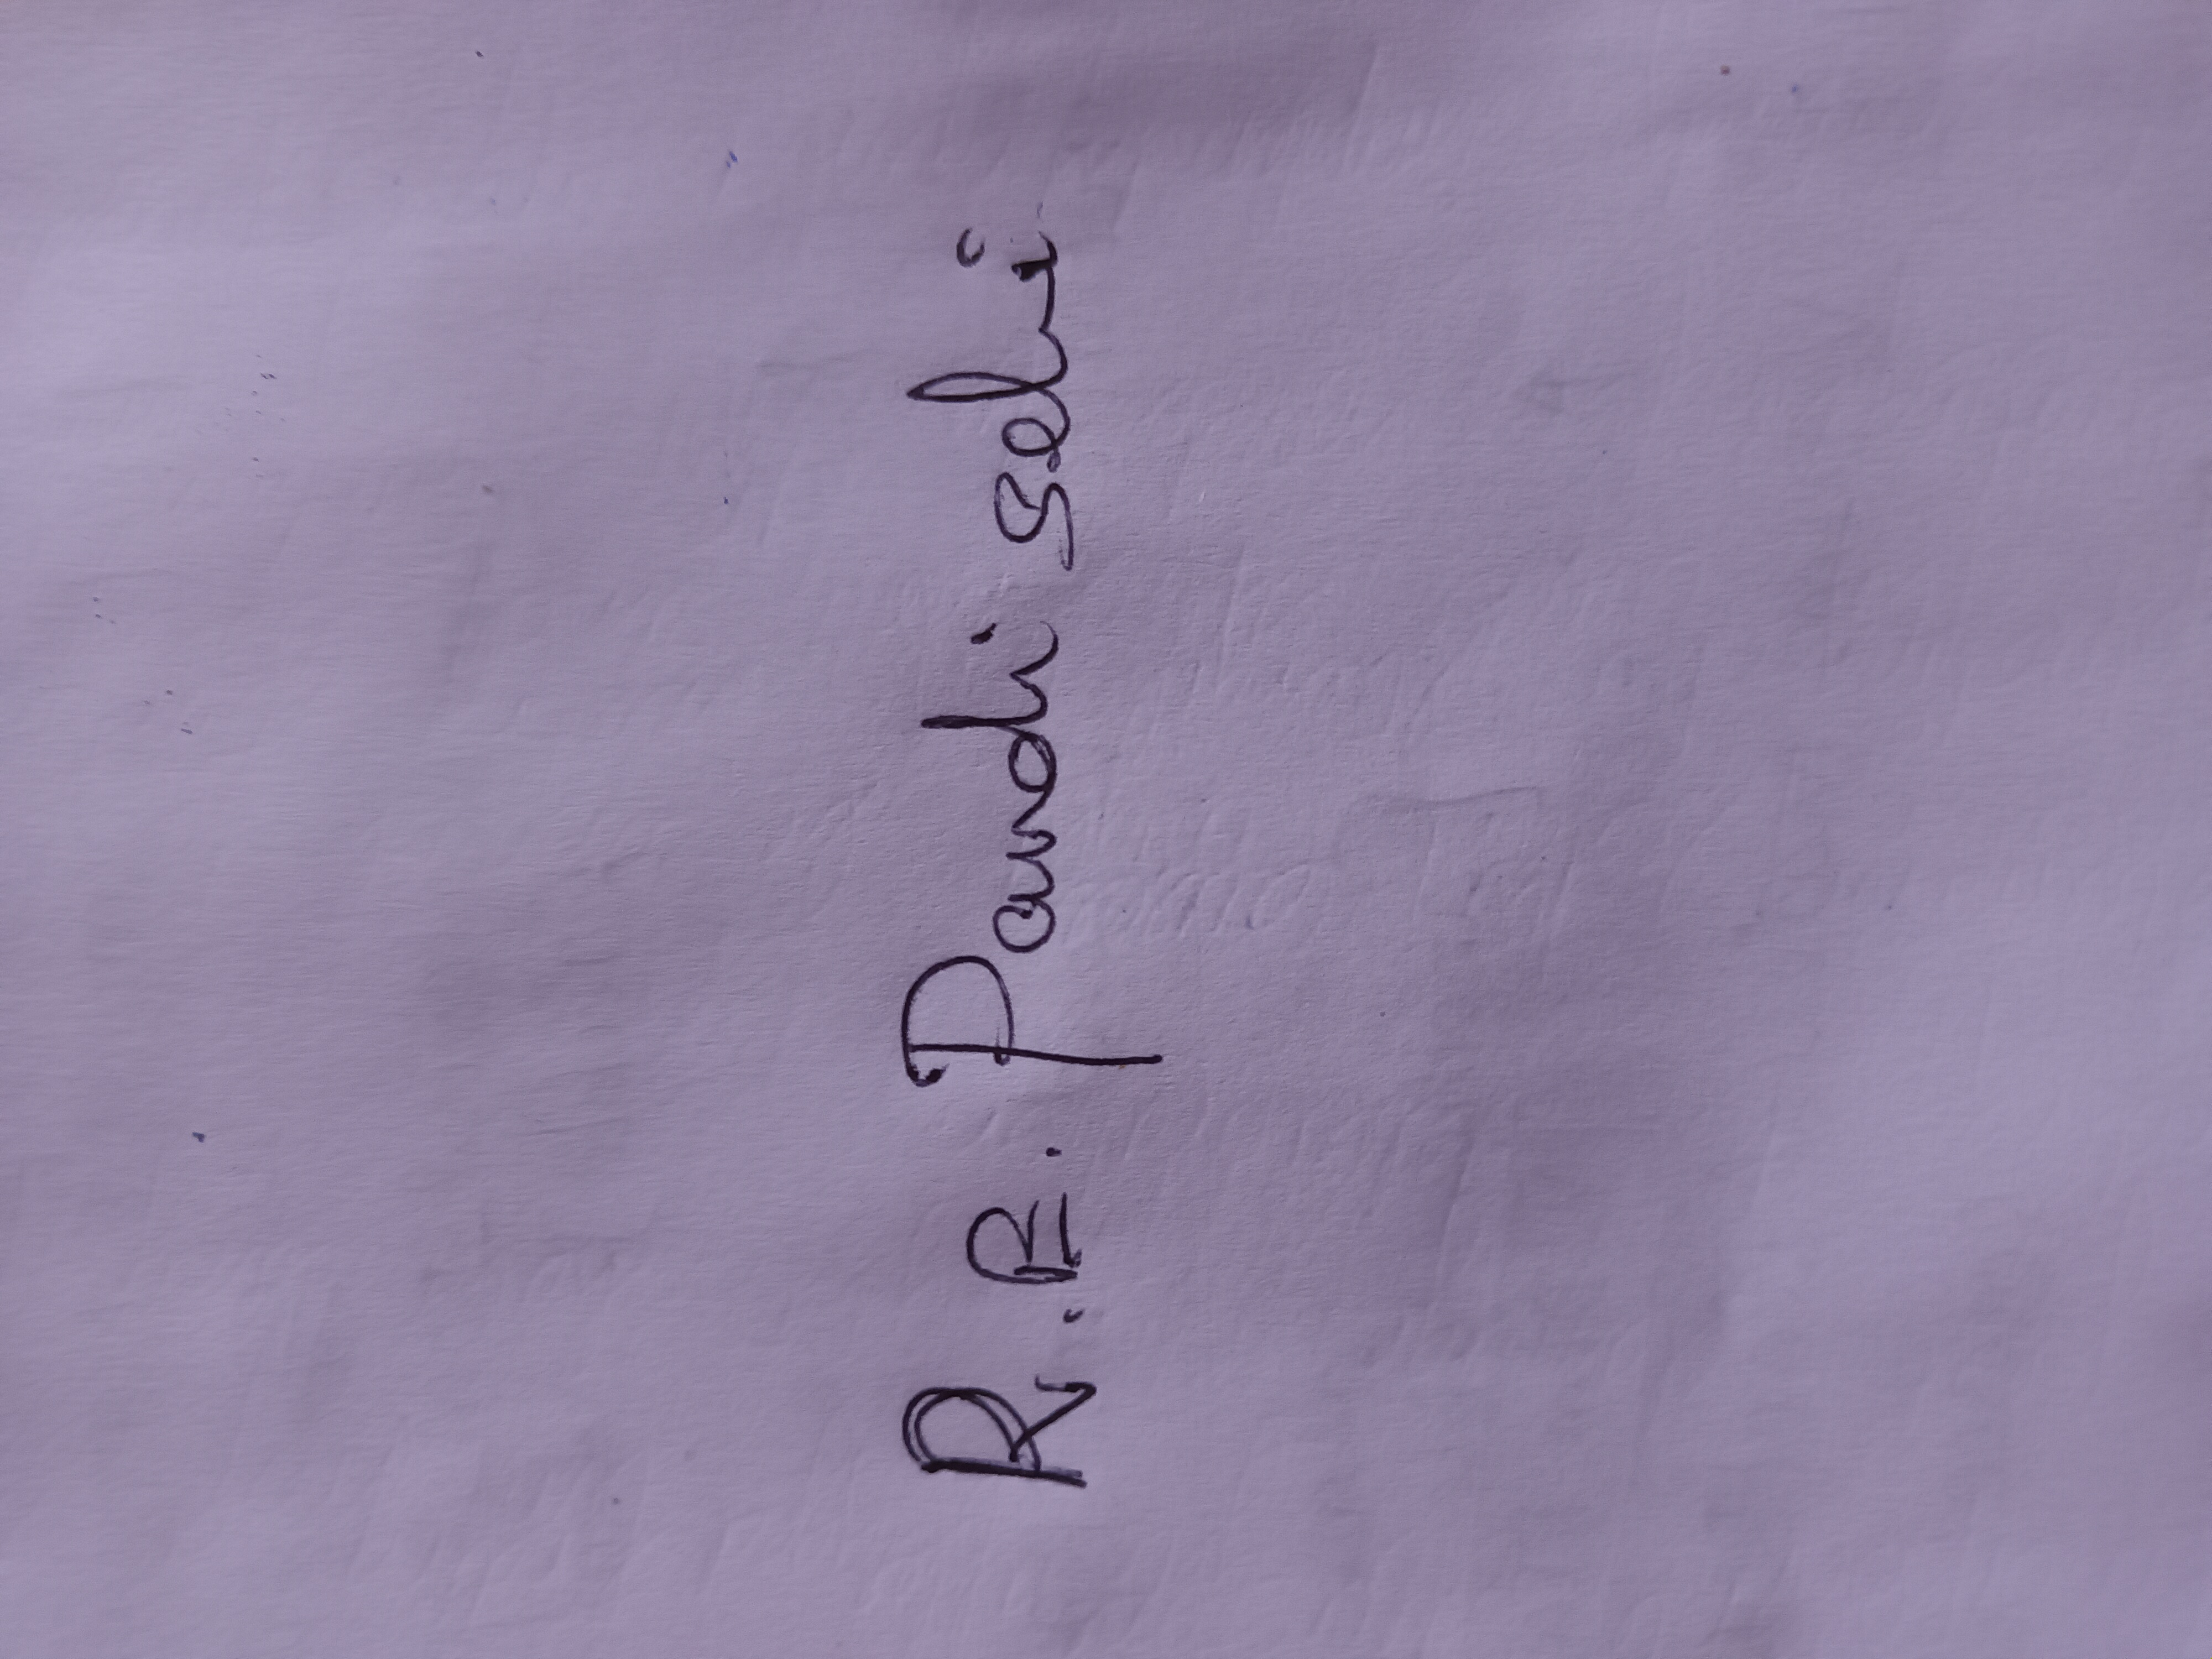 R.E. Pandi selvi